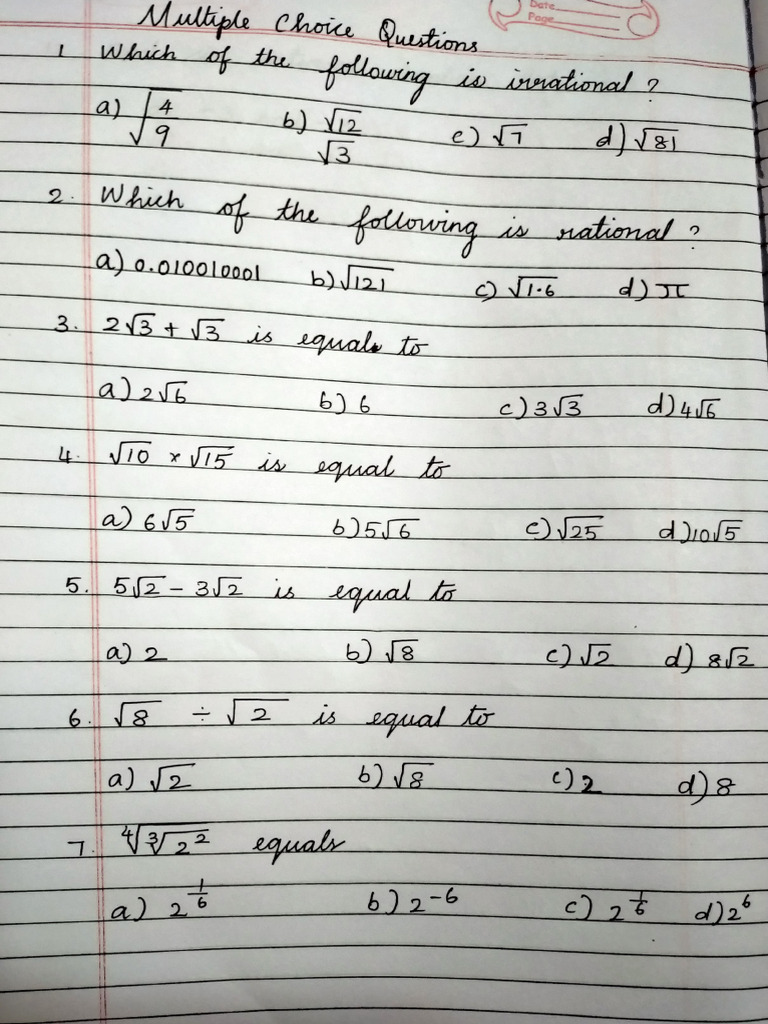 Date
Page
Multiple Choice Questions
1 Which of the following is irrational?
a) √(4/9) b) √12/√3 c) √7 d) √81
2. Which of the following is rational?
a) 0.010010001 b) √121 c) √1.6 d) π
3. 2√3 + √3 is equal to
a) 2√6 b) 6 c) 3√3 d) 4√6
4. √10 × √15 is equal to
a) 6√5 b) 5√6 c) √25 d) 10√5
5. 5√2 - 3√2 is equal to
a) 2 b) √8 c) √2 d) 8√2
6. √8 ÷ √2 is equal to
a) √2 b) √8 c) 2 d) 8
7. ⁴√³√2² equals
a) 2^(1/6) b) 2^-6 c) 2^(1/6) d) 2^6